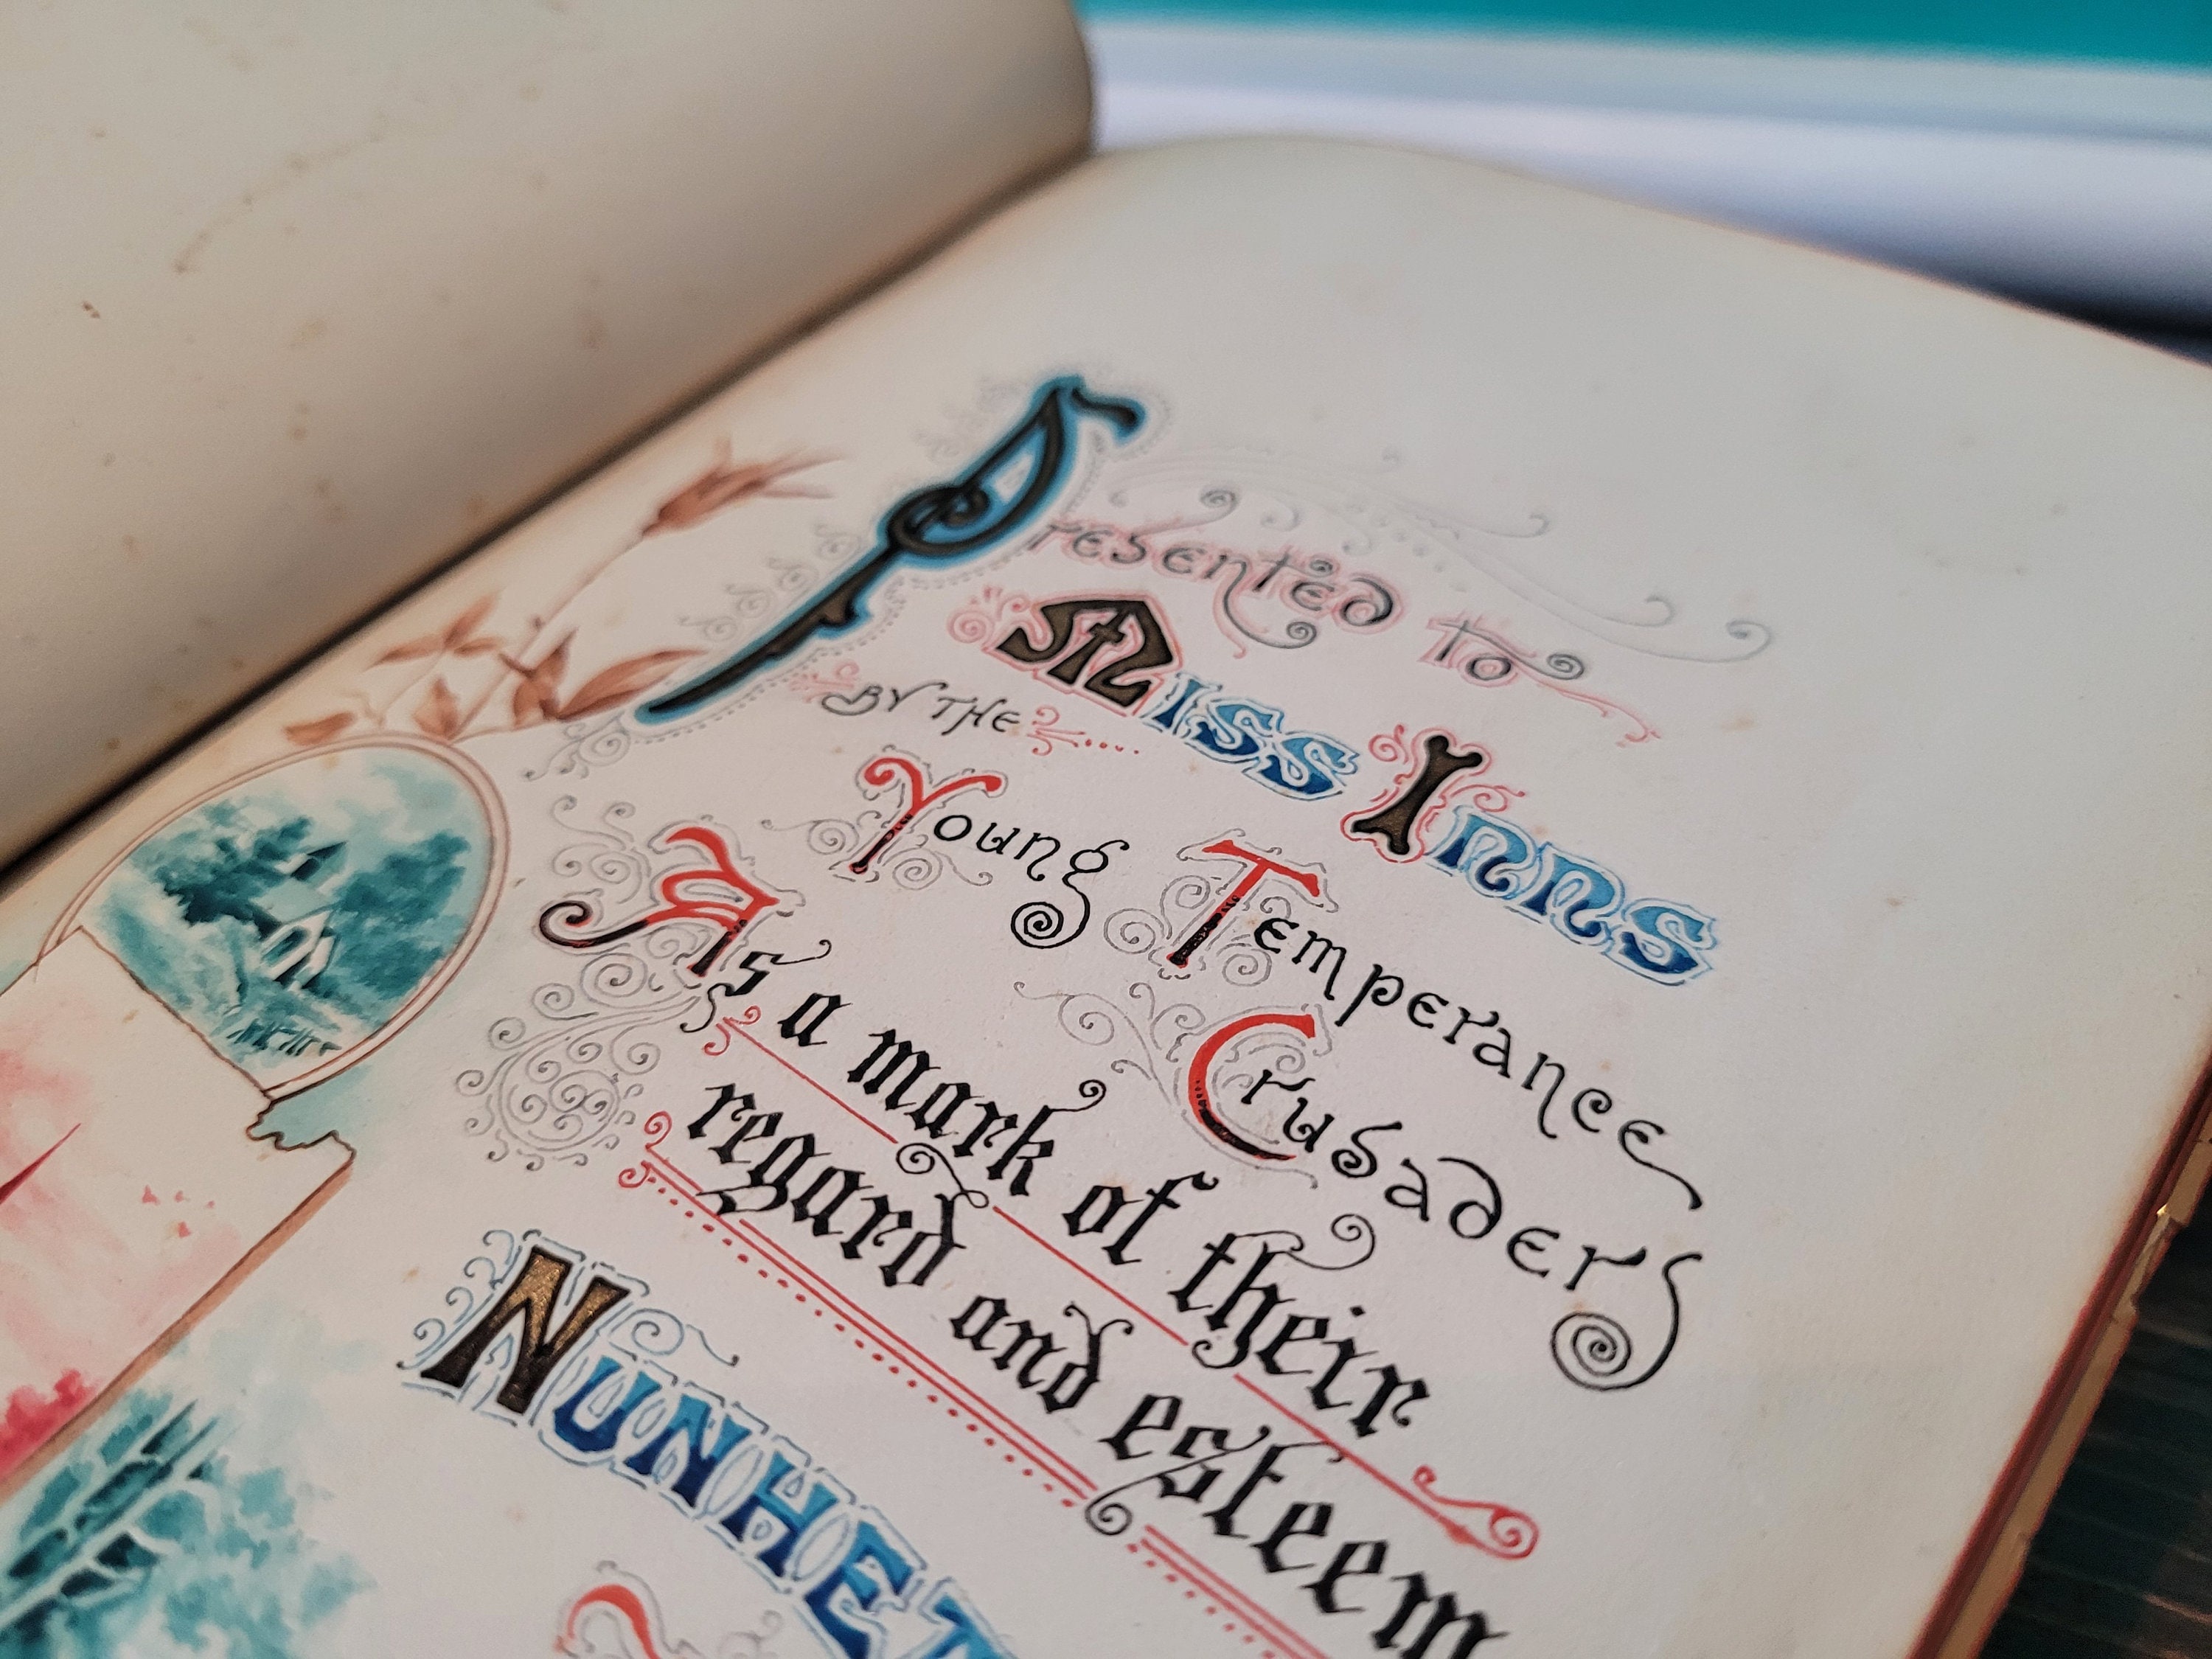 Presented to
Miss Inns
BY THE
Young Temperance
Crusaders
As a mark of their
regard and esteem